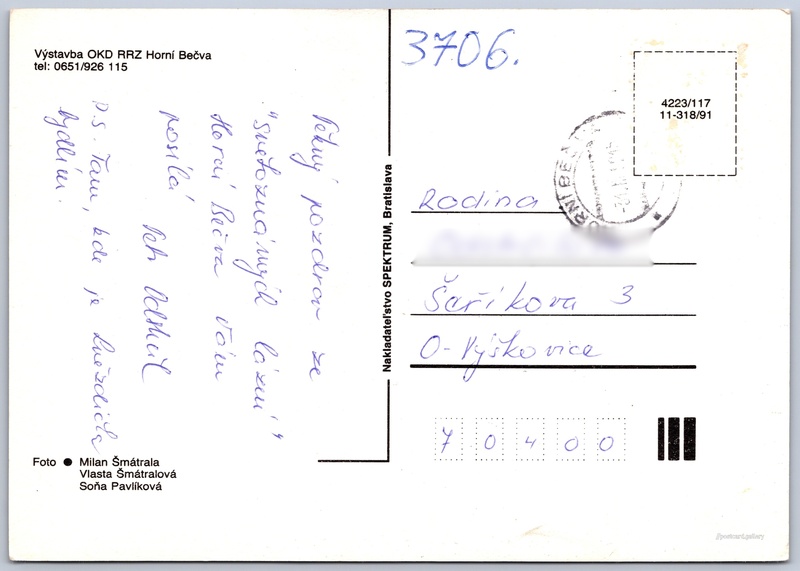 Výstavba OKD RRZ Horní Bečva
tel: 0651/926 115
Pěkný pozdrav ze
"světoznámých lázní"
Horní Bečva Vám
posílá
Petr
P.S. Tam, kde je hvězdička
bydlím.
Foto ● Milan Šmátrala
Vlasta Šmátralová
Soňa Pavlíková
Nakladateľstvo SPEKTRUM, Bratislava
3706.
4223/117
11-318/91
HORNÍ BEČVA
Rodina
Šaříkova 3
O-Výškovice
7 0 4 0 0